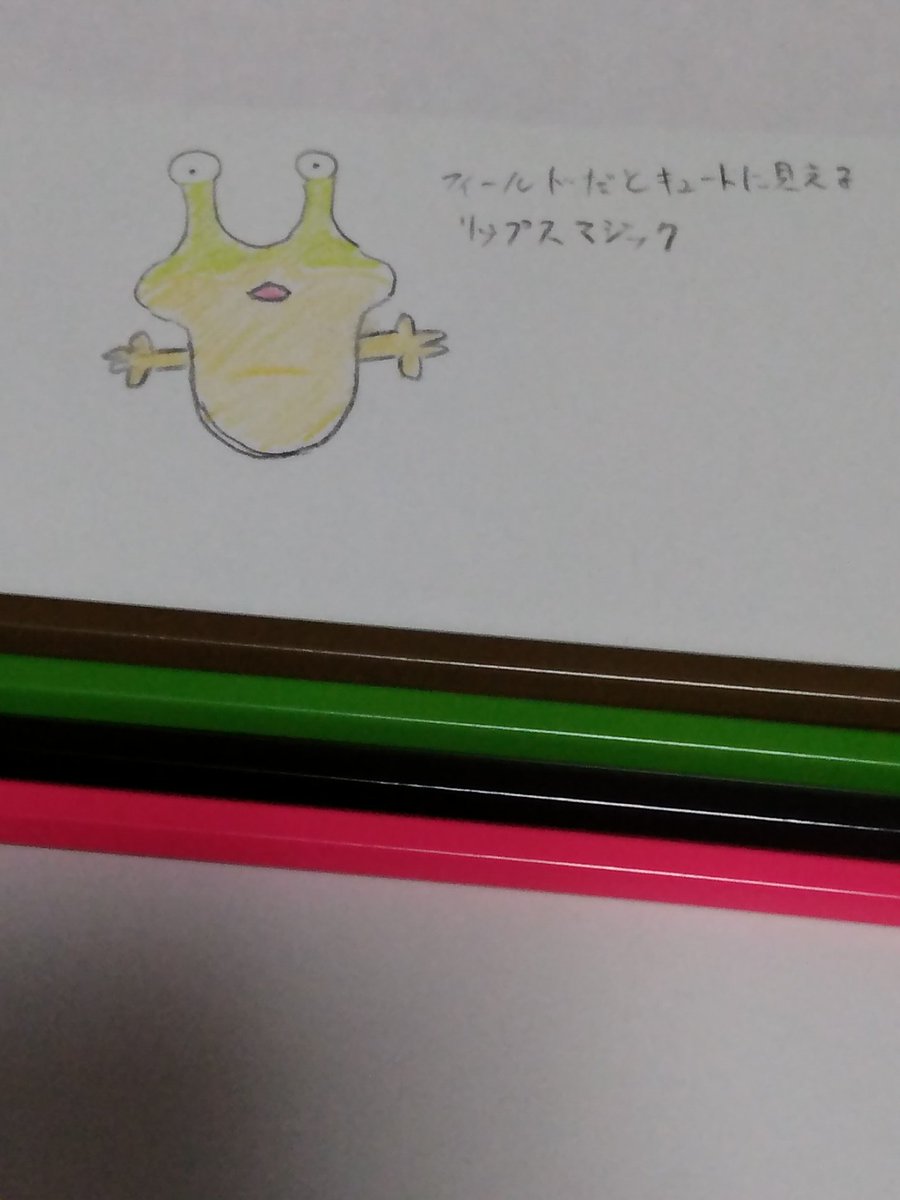 フィールドだとキュートに見える
リップスマジック